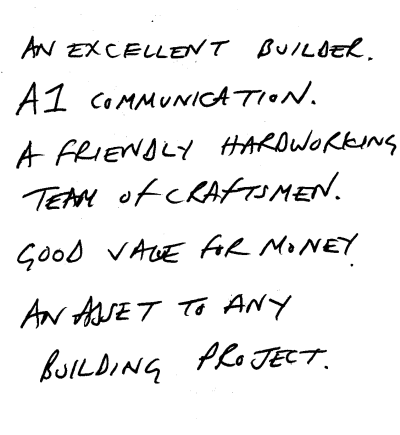 AN EXCELLENT BUILDER.
A1 COMMUNICATION.
A FRIENDLY HARDWORKING
TEAM OF CRAFTSMEN.
GOOD VALUE FOR MONEY.
AN ASSET TO ANY
BUILDING PROJECT.